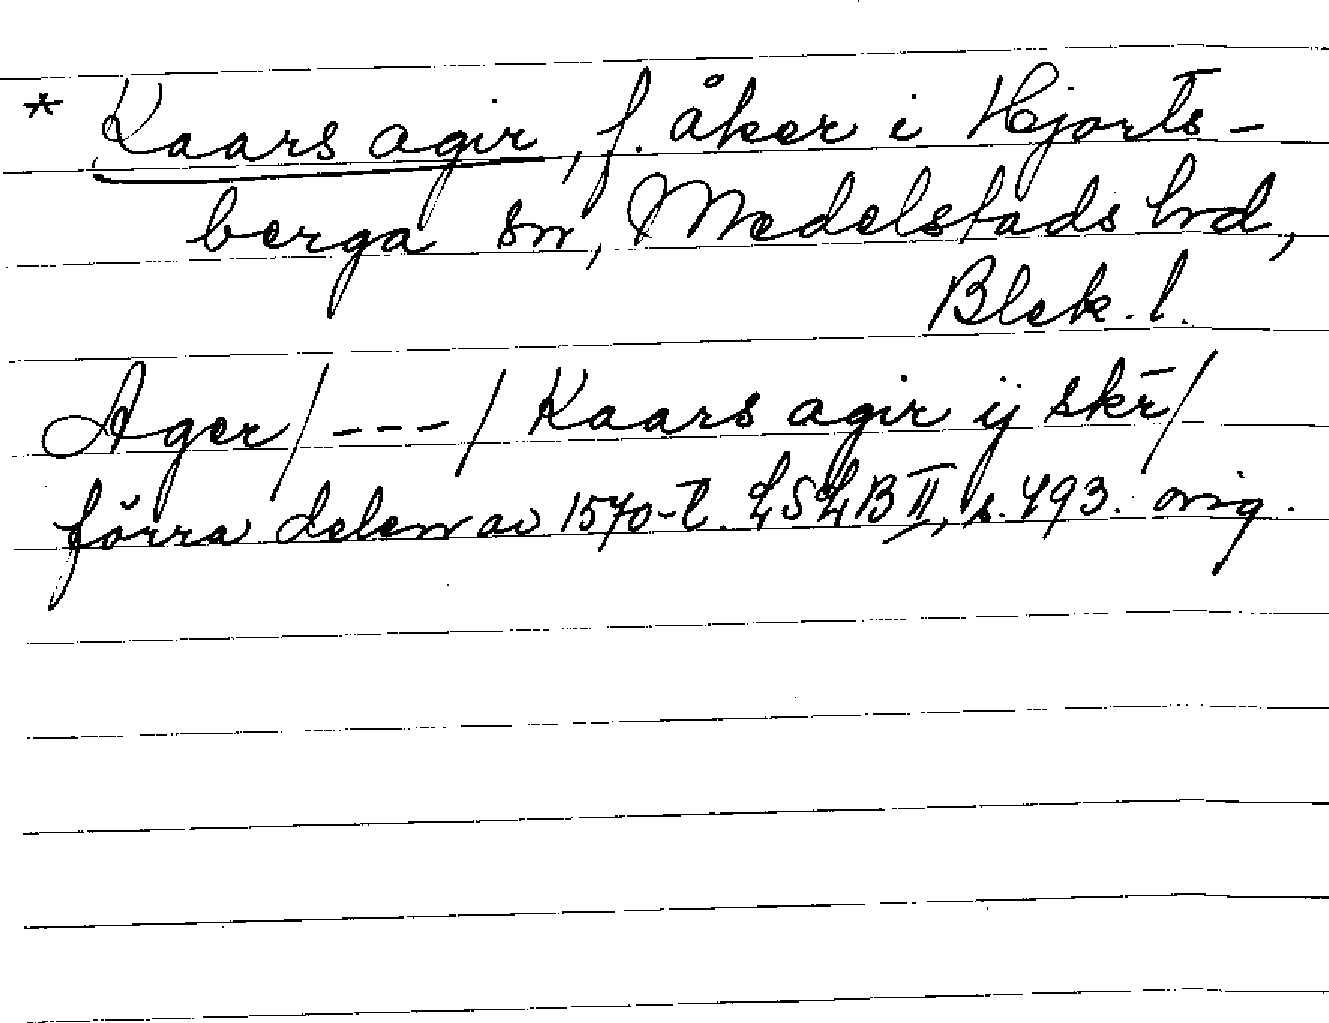 * Kaars agir, f. åker i Hjorts-
berga sn, Medelstads hrd,
Blek. l.
Ager/---/ Kaars agir ij skr̄/
förra delen av 1570-t. LSLB II, s. 493. orig.